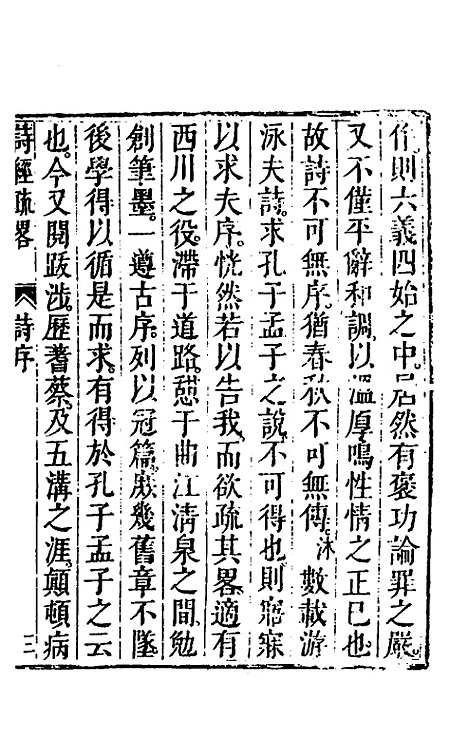 作則六義四始之中居然有褒功論罪之嚴。
又不僅平辭和調以溫厚鳴性情之正已也
故詩不可無序猶春秋不可無傳沐數載游
泳夫詩。求孔子孟子之說不可得也則寤寐
以求夫序。恍然若以告我。而欲疏其畧。適有
西川之役。滯于道路。憩于曲江清泉之間勉
創筆墨。一遵古序。列以冠篇。厥幾舊章不墜。
後學得以循是而求。有得於孔子孟子之云
也。今又閱跋涉。歷耆蔡。及五溝之涯。顛頓病
詩經疏畧 詩序 三